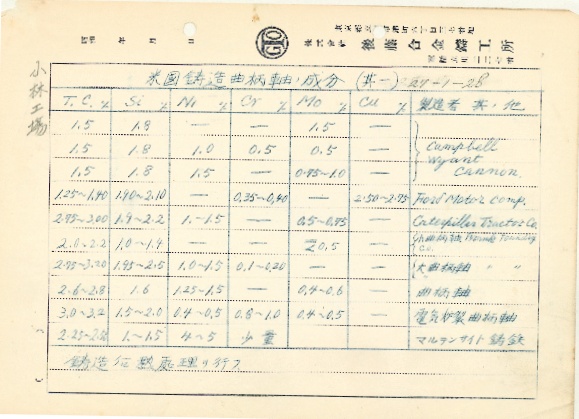 昭和 年 月 日
株式会社 後藤合金鋳工所
小林工場
米國鋳造曲柄軸ノ成分 (其一) 27-1-28
T.C. % Si % Ni % Cr % Mo % Cu % 製造者 其ノ他
1.5 1.8 — — 1.5 —
1.5 1.8 1.0 0.5 0.5 — Campbell Wyant Cannon.
1.5 1.8 1.5 — 0.75~1.0 —
1.25~1.40 1.90~2.10 — 0.35~0.40 — 2.50~2.75 Ford Motor Comp.
2.75~3.00 1.9~2.2 1.~1.5 — 0.5~0.75 — Caterpiller Tractor Co.
2.0~2.2 1.0~1.4 — — 0.5 — 小曲柄軸 Co.
2.75~3.20 1.95~2.5 1.0~1.5 0.1~0.20 — — 大曲柄軸 〃 〃
2.6~2.8 1.6 1.25~1.5 — 0.4~0.6 — 曲柄軸 〃
3.0~3.2 1.5~2.0 0.4~0.5 0.8~1.0 0.4~0.5 — 電気炉製曲柄軸
1.~1.5 4~5 少量 — マルテンサイト鋳鉄
鋳造後熱処理ヲ行フ